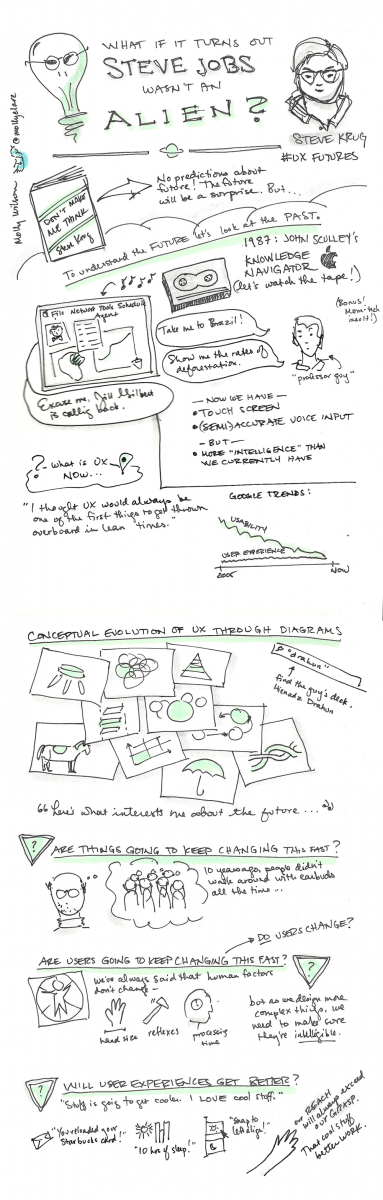 WHAT IF IT TURNS OUT
STEVE JOBS
WASN'T AN
ALIEN?
Molly Wilson @mollyclare
STEVE KRUG
#UX FUTURES
DON'T MAKE
ME THINK
Steve Krug
No predictions about
future! The future
will be a surprise. But...
To understand the FUTURE let's look at the PAST.
1987: JOHN SCULLEY'S
KNOWLEDGE
NAVIGATOR
(let's watch the tape!)
File Network Tools Schedule
Agent
Take me to Brazil!
Show me the rates of
deforestation.
(Bonus!
Mom-tech
insult!)
"professor guy"
Excuse me, Jill Gilbert
is calling back.
— NOW WE HAVE —
• TOUCH SCREEN
• (SEMI) ACCURATE VOICE INPUT
— BUT —
• MORE "INTELLIGENCE" THAN
WE CURRENTLY HAVE
? - What is UX
NOW...
"I thought UX would always be
one of the first things to get thrown
overboard in lean times."
GOOGLE TRENDS:
USABILITY
USER EXPERIENCE
NOW
CONCEPTUAL EVOLUTION OF UX THROUGH DIAGRAMS
"drahun"
find the guy's deck.
Henadz Drahun
"Here's what interests me about the future..."
? ARE THINGS GOING TO KEEP CHANGING THIS FAST?
10 years ago, people didn't
walk around with earbuds
all the time...
DO USERS CHANGE?
ARE USERS GOING TO KEEP CHANGING THIS FAST?
?
we've always said that human factors
don't change —
hand size
reflexes
processing
time
but as we design more
complex things, we
need to make sure
they're intelligible.
? WILL USER EXPERIENCES GET BETTER?
"Stuff is going to get cooler. I LOVE cool stuff."
"You reloaded your
Starbucks card!"
"10 hrs of sleep!"
"Snap to
left align!"
our REACH
will always exceed
our GRASP.
That cool stuff
better WORK.